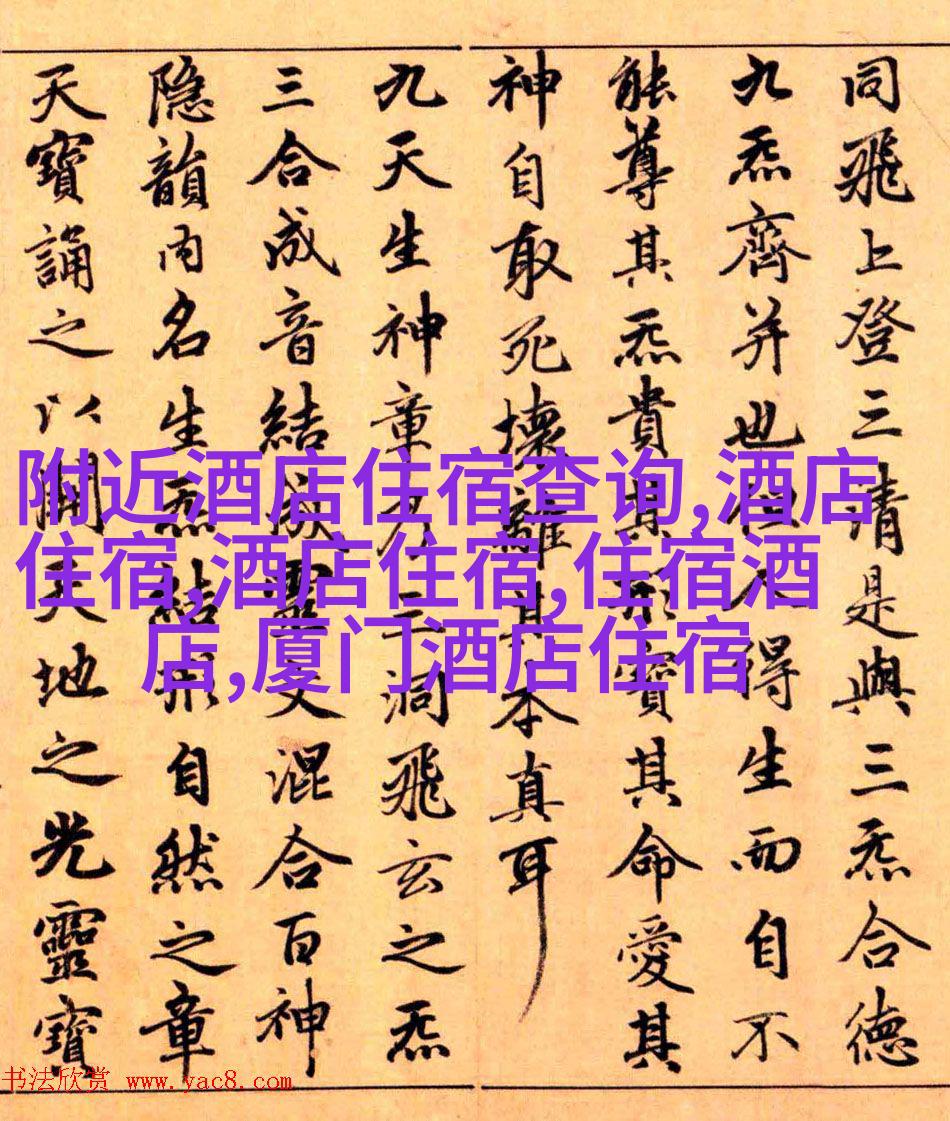 同飛上登三清是與三炁合德
九炁齊并也但人得生而自不
能尊其炁貴其形寶其命愛其
神自取死壞離其本真耳
九天生神章乃三洞飛玄之炁
三合成音結成靈文混合百神
隐韻内名生炁結形自然之章
天寶誦之以開天地之光靈寶
附近酒店住宿查询,酒店
住宿,酒店住宿,住宿酒
店,厦门酒店住宿
书法欣赏 www.yac8.com